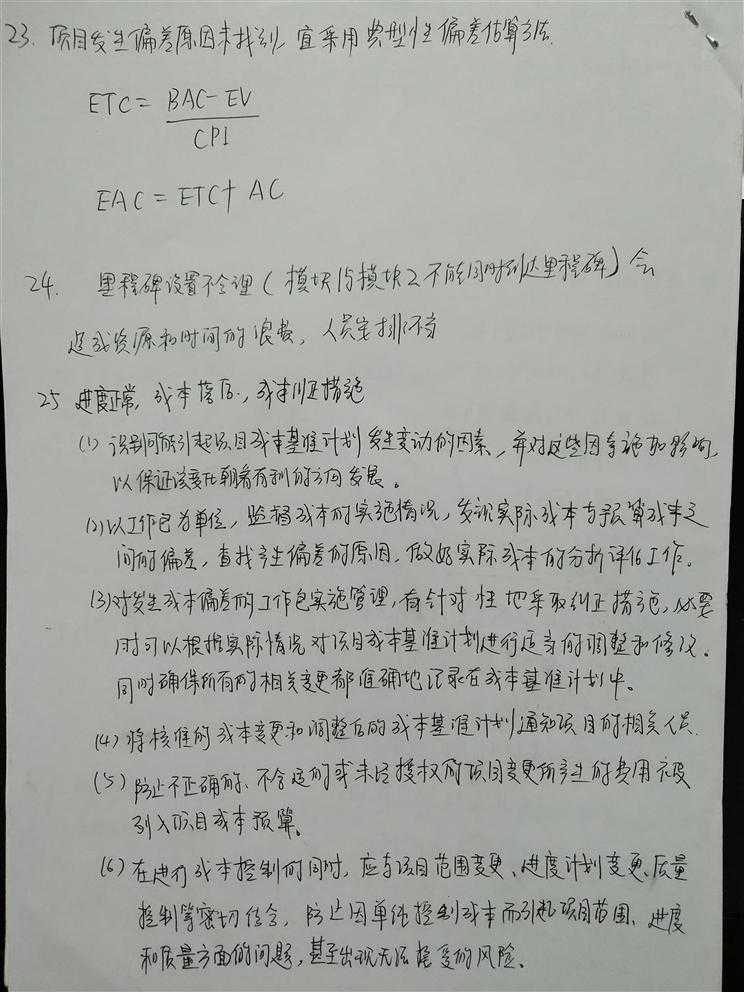 23. 项目发生偏差原因未找到, 宜采用典型性偏差估算方法.
ETC = BAC - EV
CPI
EAC = ETC + AC
24. 里程碑设置不合理 ( 模块1与模块2不能同时到达里程碑 ) 会
造成资源和时间的浪费, 人员安排不当
25 进度正常, 成本落后, 成本纠正措施
(1) 识别可能引起项目成本基准计划发生变动的因素, 并对这些因素施加影响,
以保证该变化朝着有利的方向发展。
(2) 以工作包为单位, 监督成本的实施情况, 发现实际成本与预算成本之
间的偏差, 查找产生偏差的原因, 做好实际成本的分析评估工作。
(3) 对发生成本偏差的工作包实施管理, 有针对性地采取纠正措施, 必要
时可以根据实际情况对项目成本基准计划进行适当的调整和修改。
同时确保所有的相关变更都准确地记录在成本基准计划中。
(4) 将核准的成本变更和调整后的成本基准计划通知项目的相关人员.
(5) 防止不正确的、不合适的或未经授权的项目变更所产生的费用被
列入项目成本预算。
(6) 在进行成本控制的同时, 应与项目范围变更、进度计划变更、质量
控制等密切结合, 防止因单纯控制成本而引起项目范围、进度
和质量方面的问题, 甚至出现无法接受的风险。